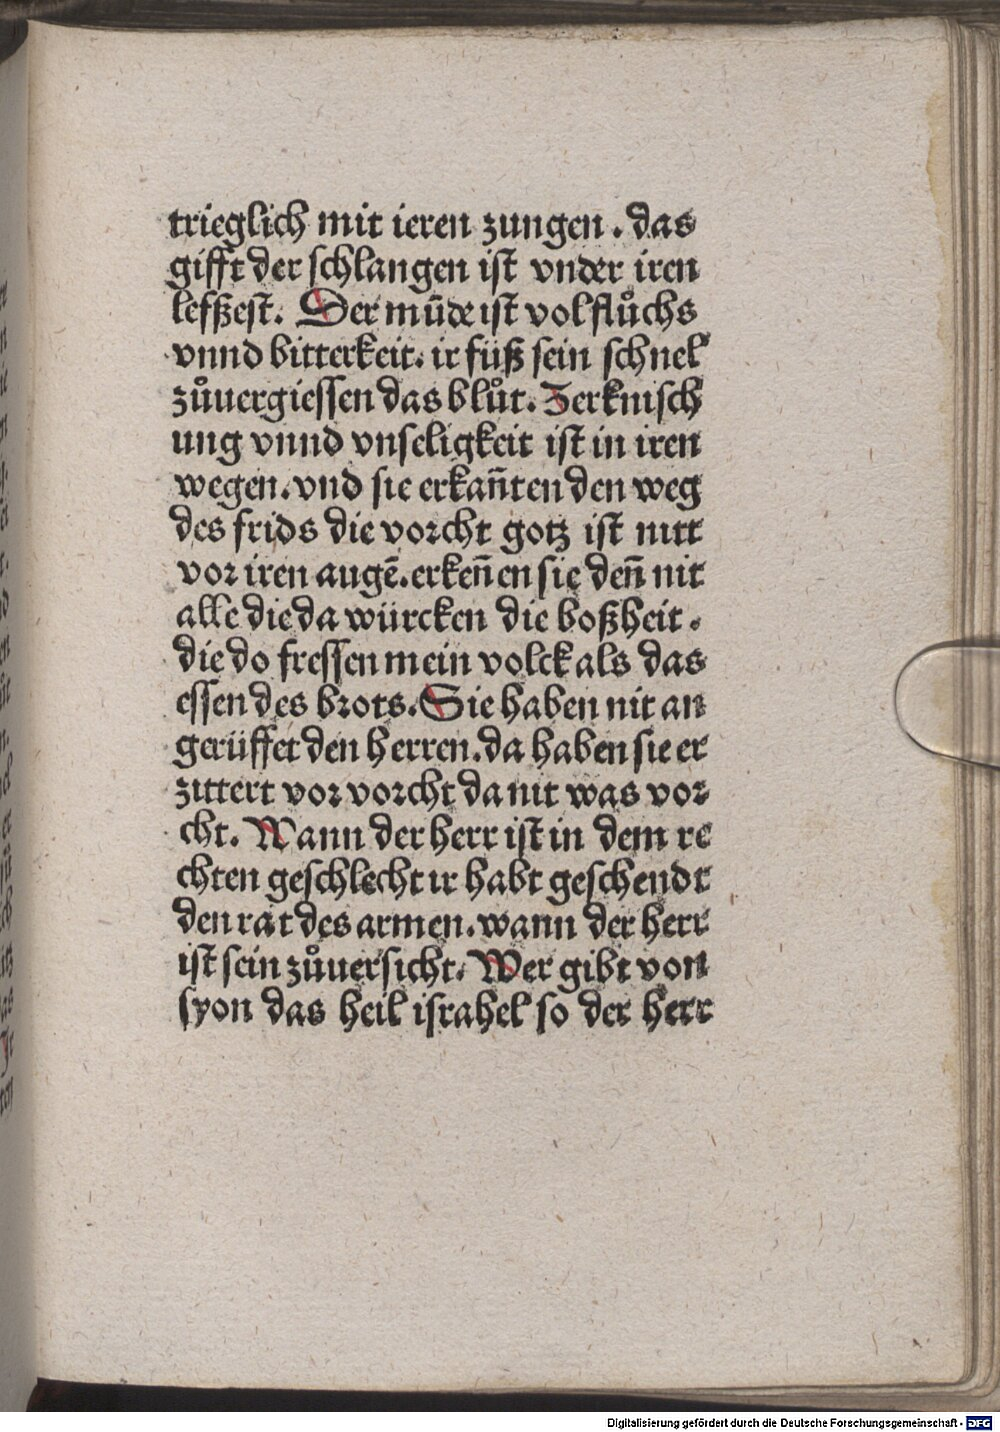 trieglich mit ieren zungen. das
gifft der schlangen ist vnder iren
lefßest. Der mūde ist vol flůchs
vnnd bitterkeit. ir füß sein schnel
zůuergiessen das blůt. Zerknisch
ung vnnd vnseligkeit ist in iren
wegen. vnd sie erkan̄ten den weg
des frids die vorcht gotz ist nitt
vor iren augē. erken̄en sie den̄ nit
alle die da würcken die boßheit.
die do fressen mein volck als das
essen des brots. Sie haben nit an
gerüffet den herren. da haben sie er
zittert vor vorcht da nit was vor
cht. Wann der herr ist in dem re
chten geschlecht ir habt geschendt
den rat des armen. wann der herr
ist sein zůuersicht. Wer gibt von
syon das heil israhel so der herr
Digitalisierung gefördert durch die Deutsche Forschungsgemeinschaft - DFG